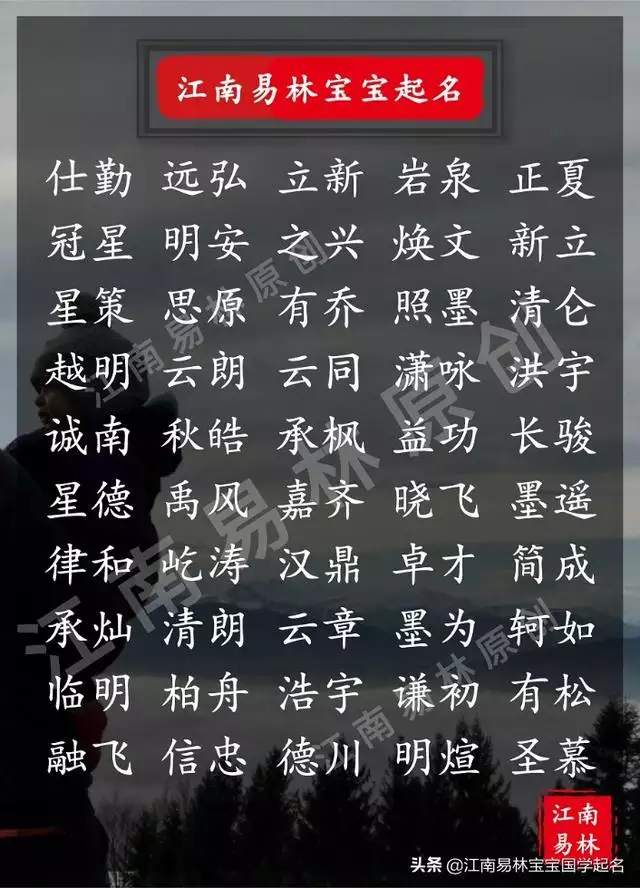 江南易林宝宝起名
仕勤 远弘 立新 岩泉 正夏
冠星 明安 之兴 焕文 新立
星策 思原 有乔 照墨 清仑
越明 云朗 云同 潇咏 洪宇
诚南 秋皓 承枫 益功 长骏
星德 禹风 嘉齐 晓飞 墨遥
律和 屹涛 汉鼎 卓才 简成
承灿 清朗 云章 墨为 轲如
临明 柏舟 浩宇 谦初 有松
融飞 信忠 德川 明煊 圣慕
江南易林原创
江南易林原创
江南易林原创
江南
易林
头条 @江南易林宝宝国学起名